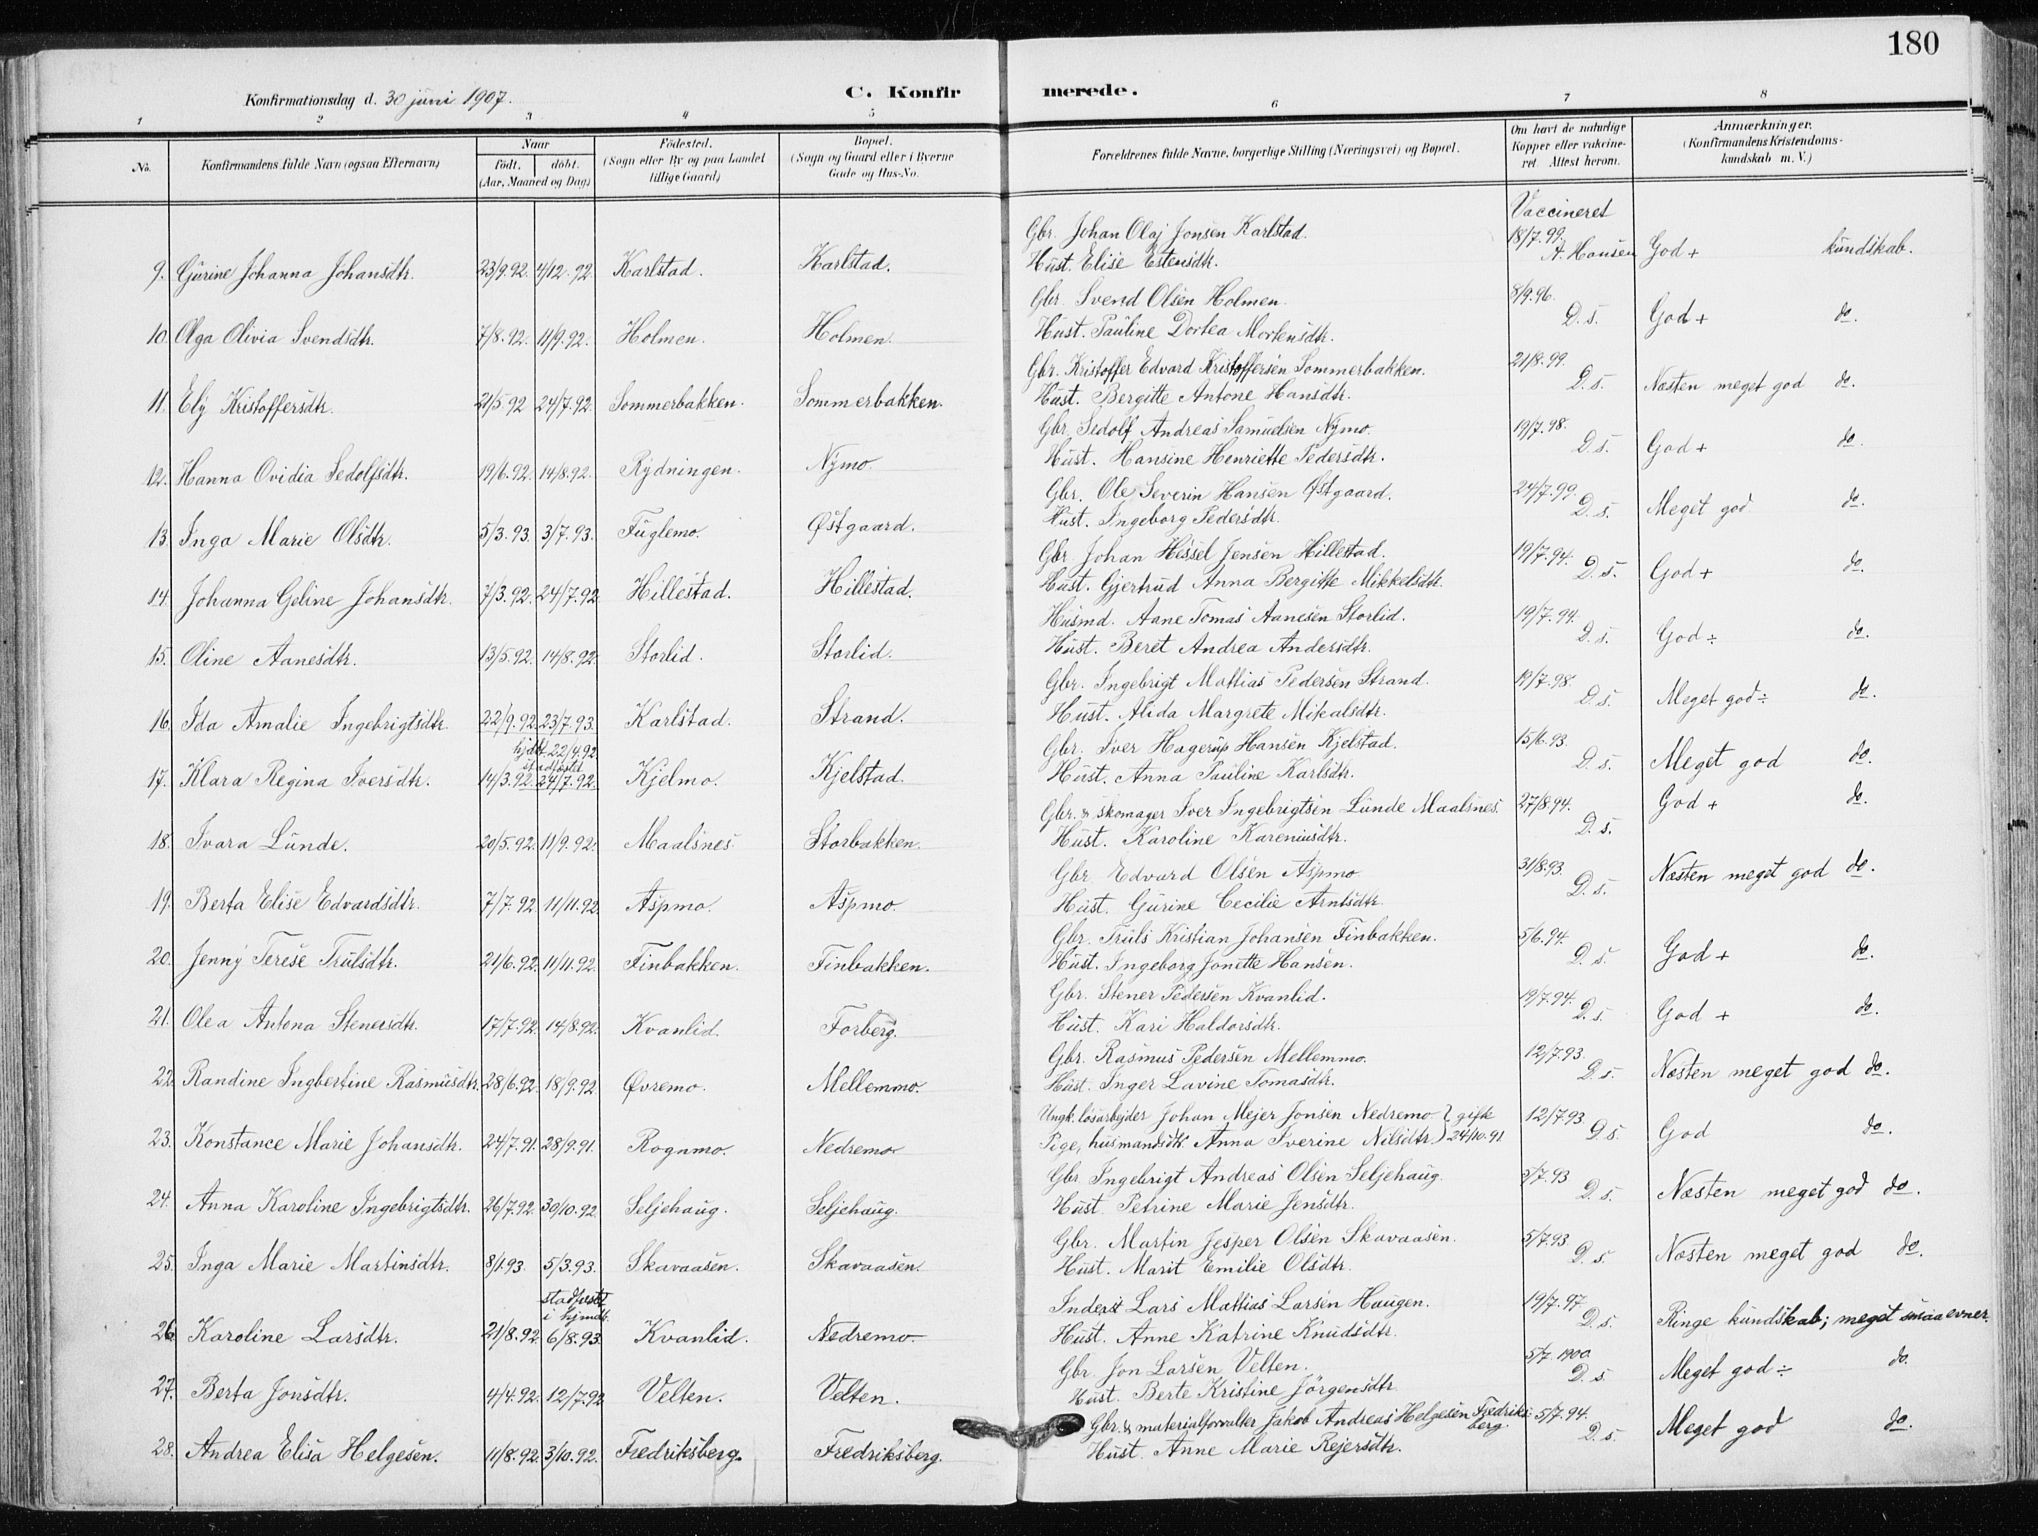 180
Konfirmationsdag d. 30 juni 1907.
C. Konfirmerede.
1 2 3 4 5 6 7 8
No. Konfirmandens fulde Navn (ogsaa Efternavn) Naar født. døbt. (Aar, Maaned og Dag) Fødested. (Sogn eller By og paa Landet tillige Gaard) Bopæl. (Sogn og Gaard eller i Byerne Gade og Hus-No. Forældrenes fulde Navne, borgerlige Stilling (Næringsvei) og Bopæl. Om havt de naturlige Kopper eller vakcineret. Attest herom. Anmærkninger. (Konfirmandens Kristendomskundskab m. V.)
Vaccineret
Gbr. Johan Olaj Jonsen Karlstad. 18/7.99.
9. Gurine Johanna Johansdtr. 23/9.92. 4/12.92. Karlstad. Karlstad. Hust. Elise Estensdtr. A. Hansen God + kundskab.
Gbr. Svend Olsen Holmen. 8/9.96.
10. Olga Olivia Svendsdtr. 7/8.92. 11/9.92. Holmen. Holmen. Hust. Pauline Dortea Mortensdtr. D. s. God + do.
Gbr. Kristoffer Edvard Kristoffersen Sommerbakken. 21/8.99.
11. Ely Kristoffersdtr. 21/5 92 24/7.92. Sommerbakken. Sommerbakken. Hust. Bergitte Antone Hansdtr. D. s. Næsten meget god do.
Gbr. Sedolf Andreas Samuelsen Nymo. 19/7.98.
12. Hanna Ovidia Sedolfsdtr. 19/6.92. 14/8.92. Rydningen. Nymo. Hust. Hansine Henriette Pedersdtr. D. s. God + do.
Gbr. Ole Severin Hansen Østgaard. 24/7.99.
13. Inga Marie Olsdtr. 5/3.93. 3/7.93. Fuglemo. Østgaard. Hust. Ingeborg Pedersdtr. D. s. Meget god do.
Gbr Johan Hissel Jensen Hillestad. 19/7.94.
14. Johanna Geline Johansdtr. 7/3.92. 24/7.92 Hillestad. Hillestad. Hust. Gjertrud Anna Bergitte Mikkelsdtr. D. s. God + do.
Husmd. Aane Tomas Aanesen Storlid. 19/7.94.
15. Oline Aanesdtr. 13/5.92. 14/8.92. Storlid. Storlid. Hust. Beret Andrea Andersdtr. D. s. God ÷ do.
Gbr. Ingebrigt Mattias Pedersen Strand. 19/7.98.
16. Ida Amalie Ingebrigtsdtr. 22/9.92. 23/7.93. Karlstad. Strand. Hust. Alida Margrete Mikalsdtr. D. s. Meget god ÷ do.
hjdbt 22/4.92
stadfæstet
Gbr. Iver Hagerup Hansen Kjelstad. 15/6.93.
17. Klara Regina Iversdtr. 14/3.92. 24/7.92. Kjelmo. Kjelstad. Hust. Anna Pauline Karlsdtr. D. s. Meget god do.
Gbr. & skomager Iver Ingebrigtsen Lunde Maalsnes. 27/8.94. God + do.
18. Ivara Lunde. 20/5.92. 11/9.92. Maalsnes Storbakken. Hust. Karoline Kareniusdtr. D. s.
Gbr. Edvard Olsen Aspmo. 31/8.93.
19. Berta Elise Edvardsdtr. 7/7.92. 11/11.92. Aspmo. Aspmo. Hust. Gurine Cecilie Arntsdtr. D. s. Næsten meget god do.
Gbr. Truls Kristian Johansen Finbakken. 5/6.94.
20. Jenny Terese Trulsdtr. 21/6.92. 11/11.92. Finbakken. Finbakken. Hust. Ingeborg Jonette Hansen. D. s. God + do.
Gbr. Stener Pedersen Kvanlid. 19/7.94.
21. Olea Antona Stenersdtr. 17/7.92. 14/8.92. Kvanlid. Forberg. Hust. Kari Haldorsdtr. D. s. God + do.
Gbr. Rasmus Pedersen Mellemmo. 12/7.93.
22. Randine Ingbertine Rasmusdtr. 28/6.92. 18/9.92. Øvremo. Mellemmo. Hust. Inger Lavine Tomasdtr. D. s. Næsten meget god do.
Ungk. løsarbejder Johan Mejer Jonsen Nedremo } gifte 12/7.93.
23. Konstance Marie Johansdtr. 24/7.91. 28/9.91. Rognmo. Nedremo. Pige, husmandsdtr. Anna Iverine Nilsdtr. } 24/10.91 D. s. God do.
Gbr. Ingebrigt Andreas Olsen Seljehaug. 5/7.93
24. Anna Karoline Ingebrigtsdtr. 26/7.92. 30/10.92. Seljehaug. Seljehaug. Hust. Petrine Marie Jensdtr. D. s. Næsten meget god do.
Gbr. Martin Jesper Olsen Skavaasen. 5/7.93
25. Inga Marie Martinsdtr. 8/1.93. 5/3.93. Skavaasen. Skavaasen. Hust. Marit Emilie Olsdtr. D. s. Næsten meget god do.
stadfæstet
i hjmdt.
Inderst Lars Mattias Larsen Haugen. 19/7.97
26. Karoline Larsdtr. 21/8.92. 6/8.93. Kvanlid. Nedremo. Hust. Anne Katrine Knudsdtr. D. s. Ringe kundskab; meget smaa evner.
Gbr. Jon Larsen Velten. 5/7.1900.
27. Berta Jonsdtr. 4/4.92. 12/7.92. Velten. Velten. Hust. Berte Kristine Jörgensdtr. D. s. Meget god ÷ do.
Gbr. & materialforvalter Jakob Andreas Helgesen Fredriksberg. 5/7.94.
28. Andrea Elisa Helgesen. 11/8.92. 3/10.92. Fredriksberg. Fredriksberg. Hust. Anne Marie Rejersdtr. D. s. Meget god do.